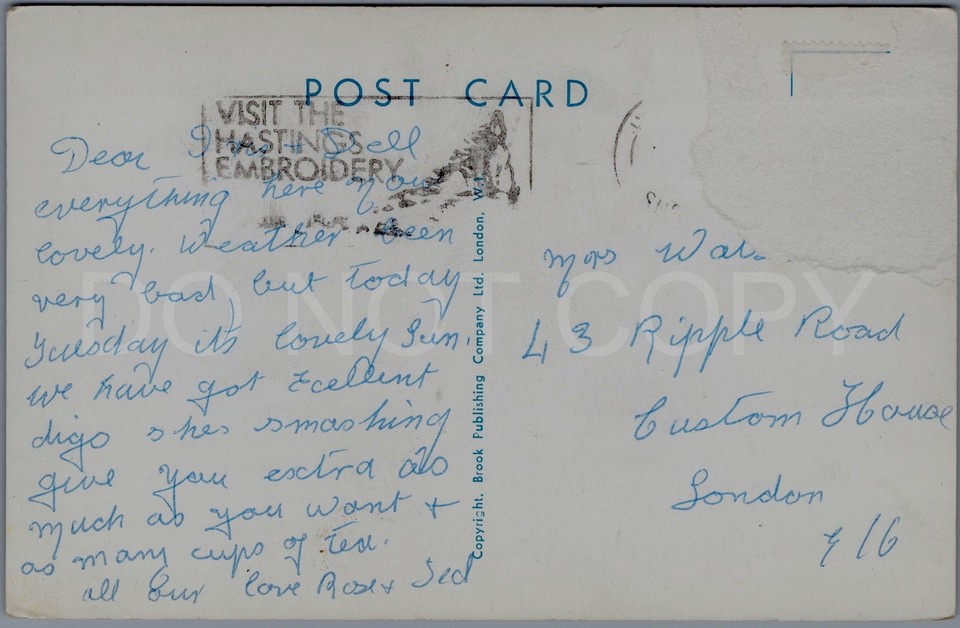 POST CARD
VISIT THE
HASTINGS
EMBROIDERY
Dear + Dell
everything here
lovely. Weather been
very bad, but today
Tuesday its lovely Sun.
we have got Excellent
digs shes smashing
give you extra as
much as you want +
as many cups of tea.
all our love Rose +
Copyright. Brook Publishing Company Ltd. London, W.1
Mrs
43 Ripple Road
Custom House
London
E 16
DO NOT COPY